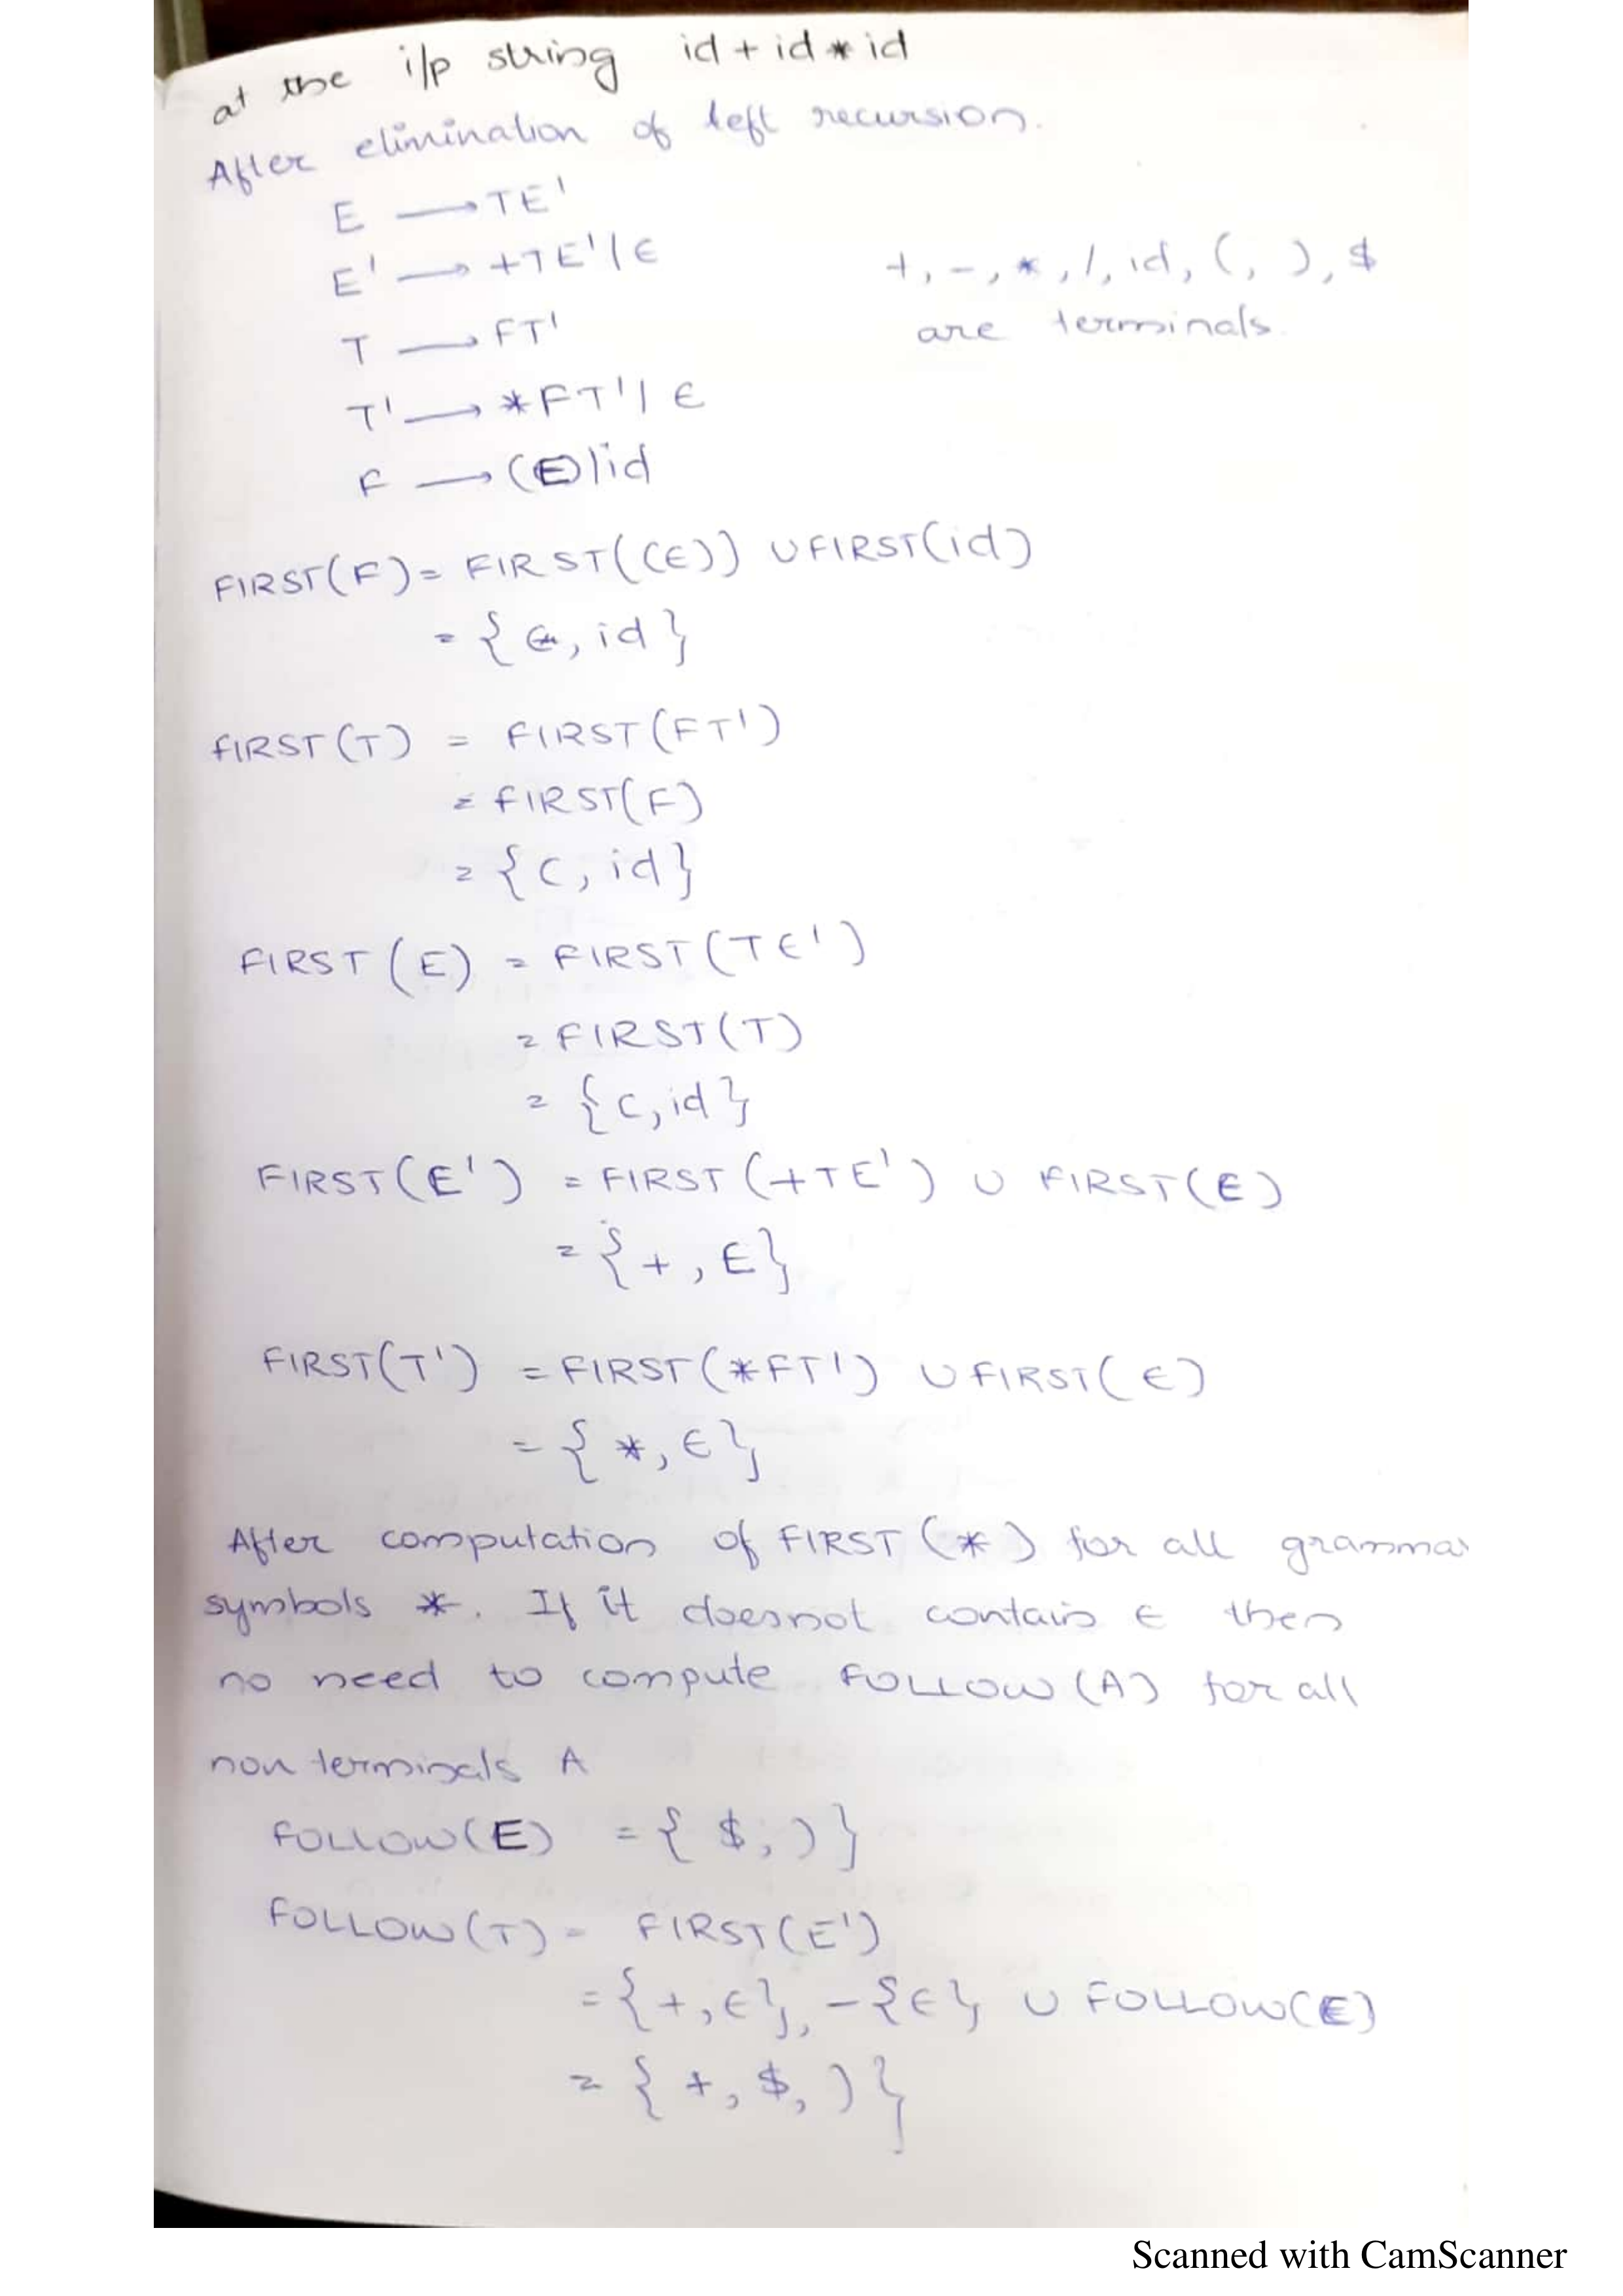 at the i/p string id + id * id
After elimination of left recursion.
E → TE'
E' → +TE' | ϵ
+, -, *, /, id, (, ), $
are terminals.
T → FT'
T' → *FT' | ϵ
F → (E) | id
FIRST(F) = FIRST((E)) ∪ FIRST(id)
= { (, id }
FIRST(T) = FIRST(FT')
= FIRST(F)
= { (, id }
FIRST(E) = FIRST(TE')
= FIRST(T)
= { (, id }
FIRST(E') = FIRST(+TE') ∪ FIRST(E)
= { +, E }
FIRST(T') = FIRST(*FT') ∪ FIRST(ϵ)
= { *, ϵ }
After computation of FIRST(*) for all grammar
symbols *. If it doesnot contain ϵ then
no need to compute FOLLOW(A) for all
non terminals A
FOLLOW(E) = { $, ) }
FOLLOW(T) = FIRST(E')
= { +, ϵ } - { ϵ } ∪ FOLLOW(E)
= { +, $, ) }
Scanned with CamScanner